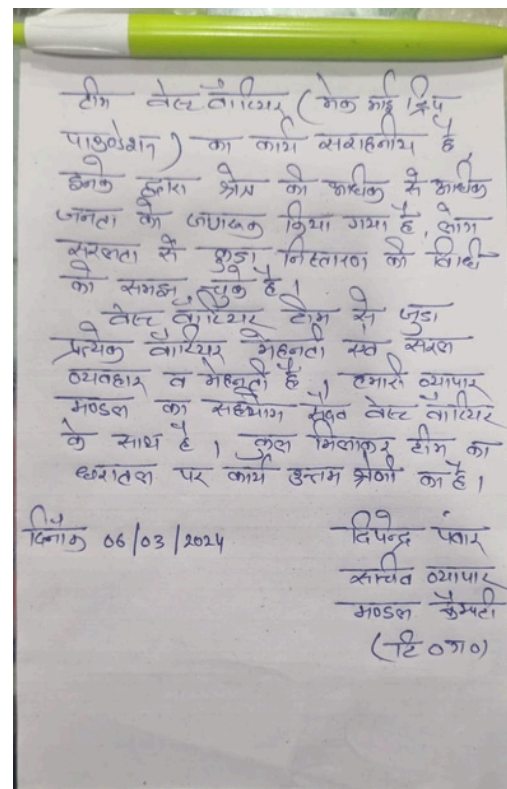 टीम वेस्ट वॉरियर (मेक माई ट्रिप
फाउण्डेशन) का कार्य सराहनीय है,
इनके द्वारा क्षेत्र की अधिक से अधिक
जनता को जागरूक किया गया है, लोग
सरलता से कुडा निस्तारण की विधि
को समझ चुके है।
वेस्ट वॉरियर टीम से जुडा
प्रत्येक वॉरियर मेहनती एवं सरल
व्यवहार व मेहनती है। हमारी व्यापार
मण्डल का सहयोग सदैव वेस्ट वॉरियर
के साथ है। कुल मिलाकर टीम का
धरातल पर कार्य उत्तम श्रेणी का है।
दिनांक 06/03/2024
दिपेन्द्र पंवार
सचिव व्यापार
मण्डल कैम्पटी
(टि०ग०)